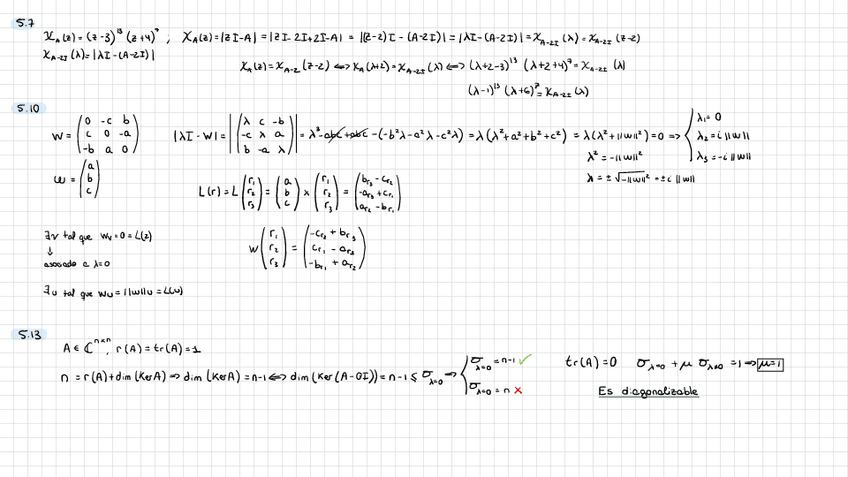 5.7
X_A(z) = (z-3)^13 (z+4)^7 ; X_A(z) = |zI-A| = |zI-2I+2I-A| = |(z-2)I-(A-2I)| = |λI-(A-2I)| = X_{A-2I}(λ) = X_{A-2I}(z-2)
X_{A-2I}(λ) = |λI-(A-2I)|
X_A(z) = X_{A-2}(z-2) ⟺ X_A(λ+2) = X_{A-2I}(λ) ⟺ (λ+2-3)^13 (λ+2+4)^7 = X_{A-2I}(λ)
(λ-1)^13 (λ+6)^7 = X_{A-2I}(λ)
5.10
W = (0 -c b; c 0 -a; -b a 0) |λI-W| = |λ c -b; -c λ a; b -a λ| = λ^3 - abc + abc - (-b^2λ - a^2λ - c^2λ) = λ(λ^2+a^2+b^2+c^2) = λ(λ^2+||w||^2) = 0 ⟹ { λ_1 = 0 λ_2 = i||w|| λ_3 = -i||w||
λ^2 = -||w||^2
λ = ±√(-||w||^2) = ±i||w||
w = (a; b; c)
L(r) = L(r_1; r_2; r_3) = (a; b; c) × (r_1; r_2; r_3) = (br_3 - cr_2; -ar_3 + cr_1; ar_2 - br_1)
∃v tal que Wv = 0 = L(z)
↓
asociado a λ=0
W(r_1; r_2; r_3) = (-cr_2 + br_3; cr_1 - ar_3; -br_1 + ar_2)
∃u tal que Wu = ||w||u = L(u)
5.13
A ∈ ℂ^{n×n}, r(A) = tr(A) = 1
n = r(A) + dim(KerA) ⟹ dim(KerA) = n-1 ⟺ dim(Ker(A-0I)) = n-1 ≤ σ_{λ=0} ⟹ { σ_{λ=0} = n-1 ✓ σ_{λ=0} = n ×
tr(A) = 0 σ_{λ=0} + μ σ_{λ≠0} = 1 ⟹ μ=1
Es diagonalizable